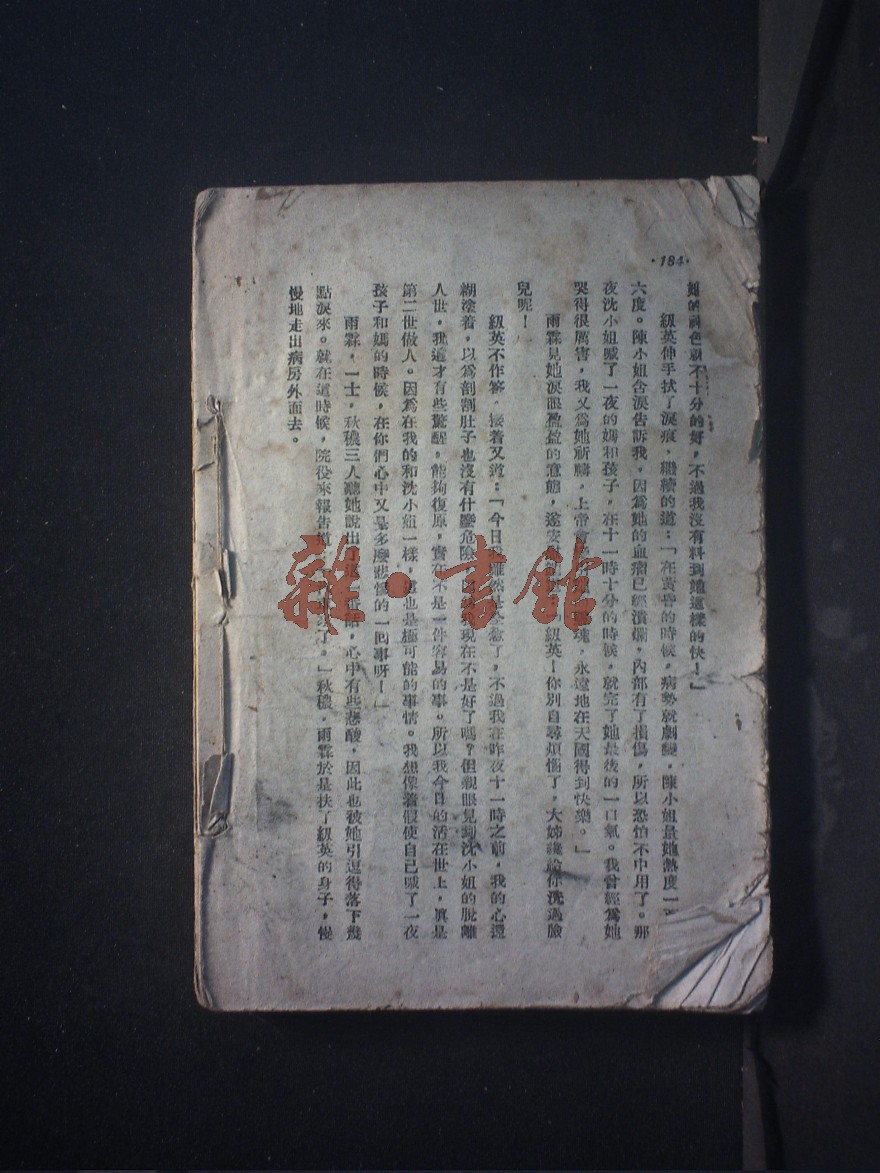 ·184·
她的神色就不十分的好，不過我沒有料到她這樣的快！」
紐英伸手拭了淚痕，繼續的道：「在黃昏的時候，病勢就劇變，陳小姐量她熱度一
六度。陳小姐含淚告訴我，因爲她的血瘤已經潰爛，內部有了損傷，所以恐怕不中用了。那
夜沈小姐喊了一夜的媽和孩子，在十一時十分的時候，就完了她最後的一口氣。我曾經爲她
哭得很厲害，我又爲她祈禱，上帝會 魂，永遠地在天國得到快樂。」
雨霖見她淚眼盈盈的意態，遂安 紐英！你別自尋煩惱了，大姊 給你洗過臉
兒呢！
紐英不作答，接着又道：「今日我雖然是全愈了，不過我在昨夜十一時之前，我的心還
糊塗着，以爲剖割肚子也沒有什麼危險， 現在不是好了嗎？但親眼見到沈小姐的脫離
人世，我這才有些驚醒，能夠復原，實在不是一件容易的事。所以我今日的活在世上，眞是
第二世做人。因爲在我的和沈小姐一樣，這也是極可能的事情。我想像着假使自己喊了一夜
孩子和媽的時候，在你們心中又是多麼悲慘的一回事呀！」
雨霖，一士，秋穠三人聽她說出了這一番話，心中有些悲酸，因此也被她引逗得落下幾
點淚來。就在這時候，院役來報告道： 了。」秋穠，雨霖於是扶了紐英的身子，慢
慢地走出病房外面去。
雜·書館